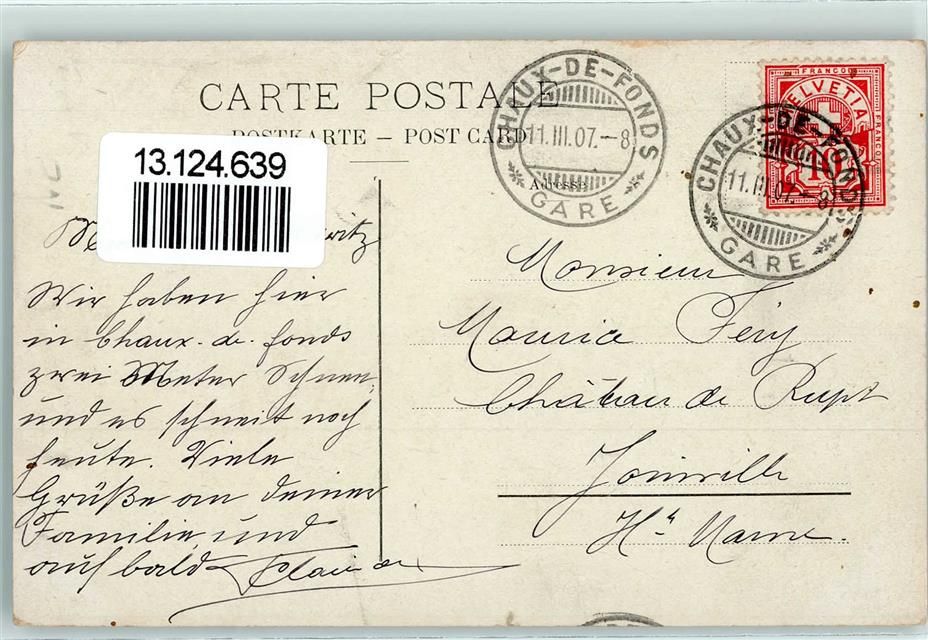 CARTE POSTALE
POSTKARTE – POST CARD
CHAUX-DE-FONDS
11.III.07.–8
GARE
Adresse
FRANCO
HELVETIA
FRANCO
10
CHAUX-DE-FONDS
11.III.07.–8
GARE
13.124.639
Wir haben hier
in Chaux-de-fonds
zwei Meter Schnee,
und es schneit noch
heute. Viele
Grüße an deine
Familie, und
auf bald
Monsieur
Féry
Château de Rupt
Joinville
Hte Marne.